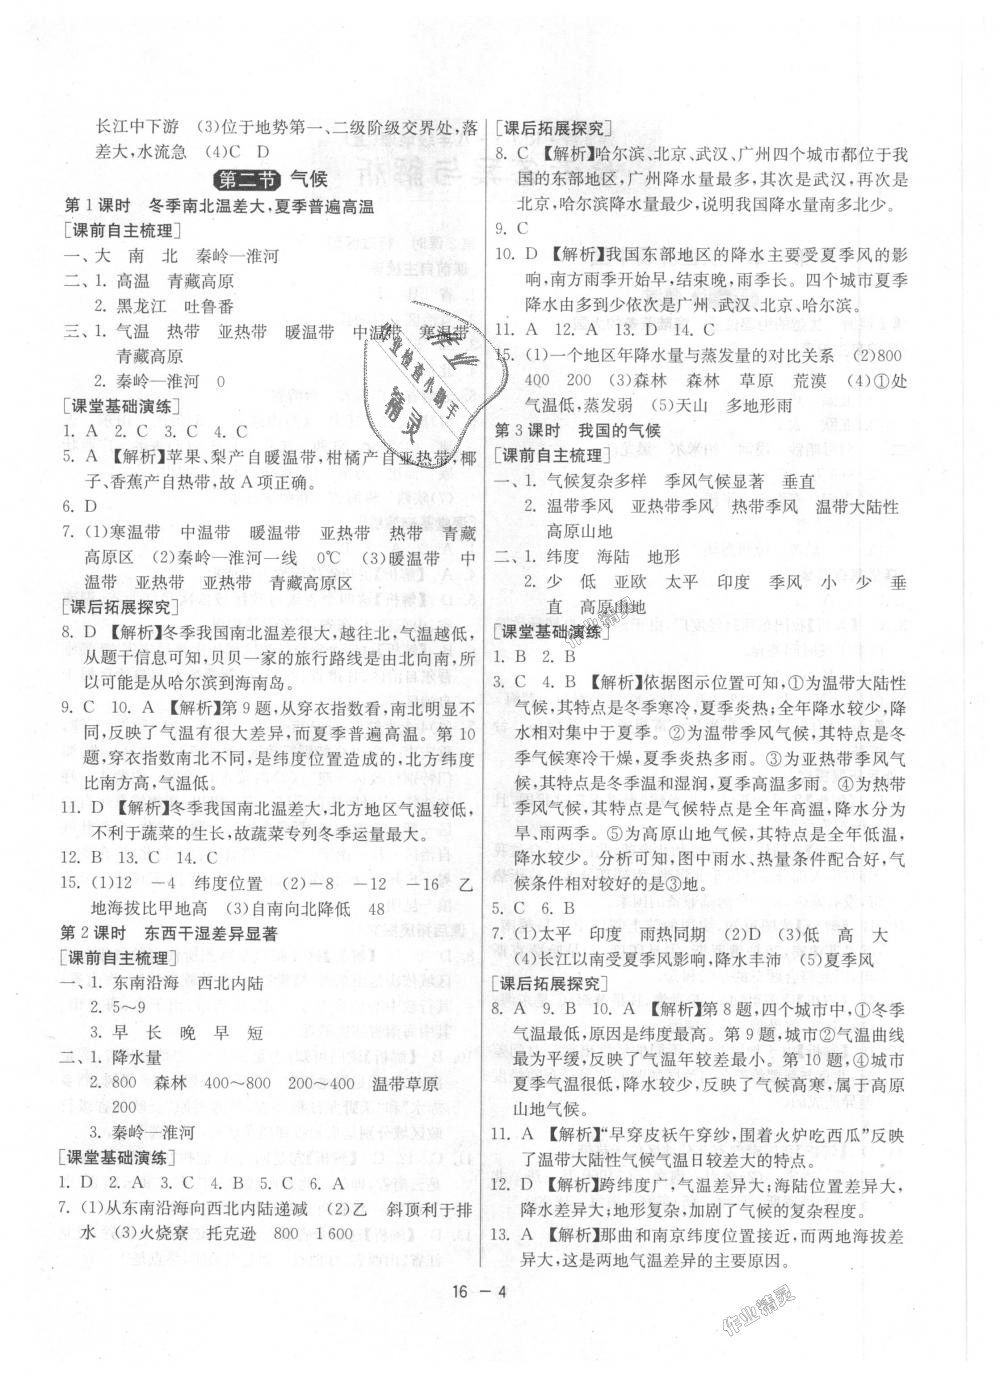 长江中下游　(3)位于地势第一、二级阶级交界处,落
差大,水流急　(4)C　D
第二节　气候
第1课时　冬季南北温差大,夏季普遍高温
[课前自主梳理]
一、大　南　北　秦岭—淮河
二、1. 高温　青藏高原
2. 黑龙江　吐鲁番
三、1. 气温　热带　亚热带　暖温带　中温带　寒温带
青藏高原
2. 秦岭—淮河　0
[课堂基础演练]
1. A　2. C　3. C　4. C
5. A　【解析】苹果、梨产自暖温带,柑橘产自亚热带,椰
子、香蕉产自热带,故A项正确。
6. D
7. (1)寒温带　中温带　暖温带　亚热带　热带　青藏
高原区　(2)秦岭—淮河一线　0℃　(3)暖温带　中
温带　亚热带　亚热带　青藏高原区
[课后拓展探究]
8. D　【解析】冬季我国南北温差很大,越往北,气温越低,
从题干信息可知,贝贝一家的旅行路线是由北向南,所
以可能是从哈尔滨到海南岛。
9. C　10. A　【解析】第9题,从穿衣指数看,南北明显不
同,反映了气温有很大差异,而夏季普遍高温。第10
题,穿衣指数南北不同,是纬度位置造成的,北方纬度
比南方高,气温低。
11. D　【解析】冬季我国南北温差大,北方地区气温较低,
不利于蔬菜的生长,故蔬菜专列冬季运量最大。
12. B　13. C　14. C
15. (1)12　-4　纬度位置　(2)-8　-12　-16　乙
地海拔比甲地高　(3)自南向北降低　48
第2课时　东西干湿差异显著
[课前自主梳理]
一、1. 东南沿海　西北内陆
2. 5～9
3. 早　长　晚　早　短
二、1. 降水量
2. 800　森林　400～800　200～400　温带草原
200
3. 秦岭—淮河
[课堂基础演练]
1. D　2. A　3. C　4. B　5. C　6. A
7. (1)从东南沿海向西北内陆递减　(2)乙　斜顶利于排
水　(3)火烧寮　托克逊　800　1 600
[课后拓展探究]
8. C　【解析】哈尔滨、北京、武汉、广州四个城市都位于我
国的东部地区,广州降水量最多,其次是武汉,再次为
北京,哈尔滨降水量最少,说明我国降水南多北少。
9. C
10. D　【解析】我国东部地区的降水主要受夏季风的影
响,南方雨季开始早,结束晚,雨季长。四个城市夏季
降水由多到少依次是广州、武汉、北京、哈尔滨。
11. A　12. A　13. D　14. C
15. (1)一个地区年降水量与蒸发量的对比关系　(2)800
400　200　(3)森林　森林　草原　荒漠　(4)①处
气温低,蒸发弱　(5)天山　多地形雨
第3课时　我国的气候
[课前自主梳理]
一、1. 气候复杂多样　季风气候显著　垂直
2. 温带季风　亚热带季风　热带季风　温带大陆性
高原山地
二、1. 纬度　海陆　地形
2. 少　低　亚欧　太平　印度　季风　小　少　垂
直　高原山地
[课堂基础演练]
1. B　2. B
3. C　4. B　【解析】依据图示位置可知,①为温带大陆性
气候,其特点是冬季寒冷,夏季炎热;全年降水较少,降
水相对集中于夏季。②为温带季风气候,其特点是冬
季气候寒冷干燥,夏季炎热多雨。③为亚热带季风气
候,其特点是冬季温和湿润,夏季高温多雨。④为热带
季风气候,其特点是气候特点是全年高温,降水分为
旱、雨两季。⑤为高原山地气候,其特点是全年低温,
降水较少。分析可知,图中雨水、热量条件配合好,气
候条件相对较好的是③地。
5. C　6. B
7. (1)太平　印度　雨热同期　(2)D　(3)低　高　大
(4)长江以南受夏季风影响,降水丰沛　(5)夏季风
[课后拓展探究]
8. A　9. B　10. A　【解析】第8题,四个城市中,①冬季
气温最低,原因是纬度最高。第9题,城市②气温曲线
最为平缓,反映了气温年较差最小。第10题,④城市
夏季气温很低,降水较少,反映了气候高寒,属于高原
山地气候。
11. A　【解析】“早穿皮袄午穿纱,围着火炉吃西瓜”反映
了温带大陆性气候气温日较差大的特点。
12. D　【解析】跨纬度广,气温差异大;海陆位置差异大,
降水差异大;地形复杂,加剧了气候的复杂程度。
13. A　【解析】那曲和南京纬度位置接近,而两地海拔差
异大,这是两地气温差异的主要原因。
16 — 4
作业
作业检查小助手
精灵
作业精灵
作业精灵